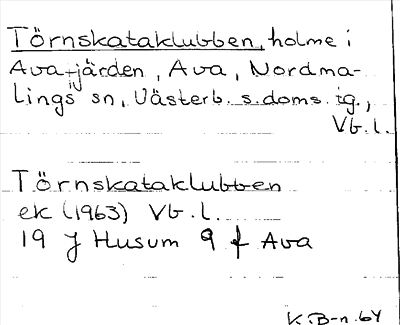 Törnskataklubben, holme i
Avafjärden, Ava, Nordma-
lings sn, Västerb. s. doms. tg.,
Vb. l.
Törnskataklubben
ek (1963) Vb. l.
19 J Husum 9 f Ava
K.B-n. 64